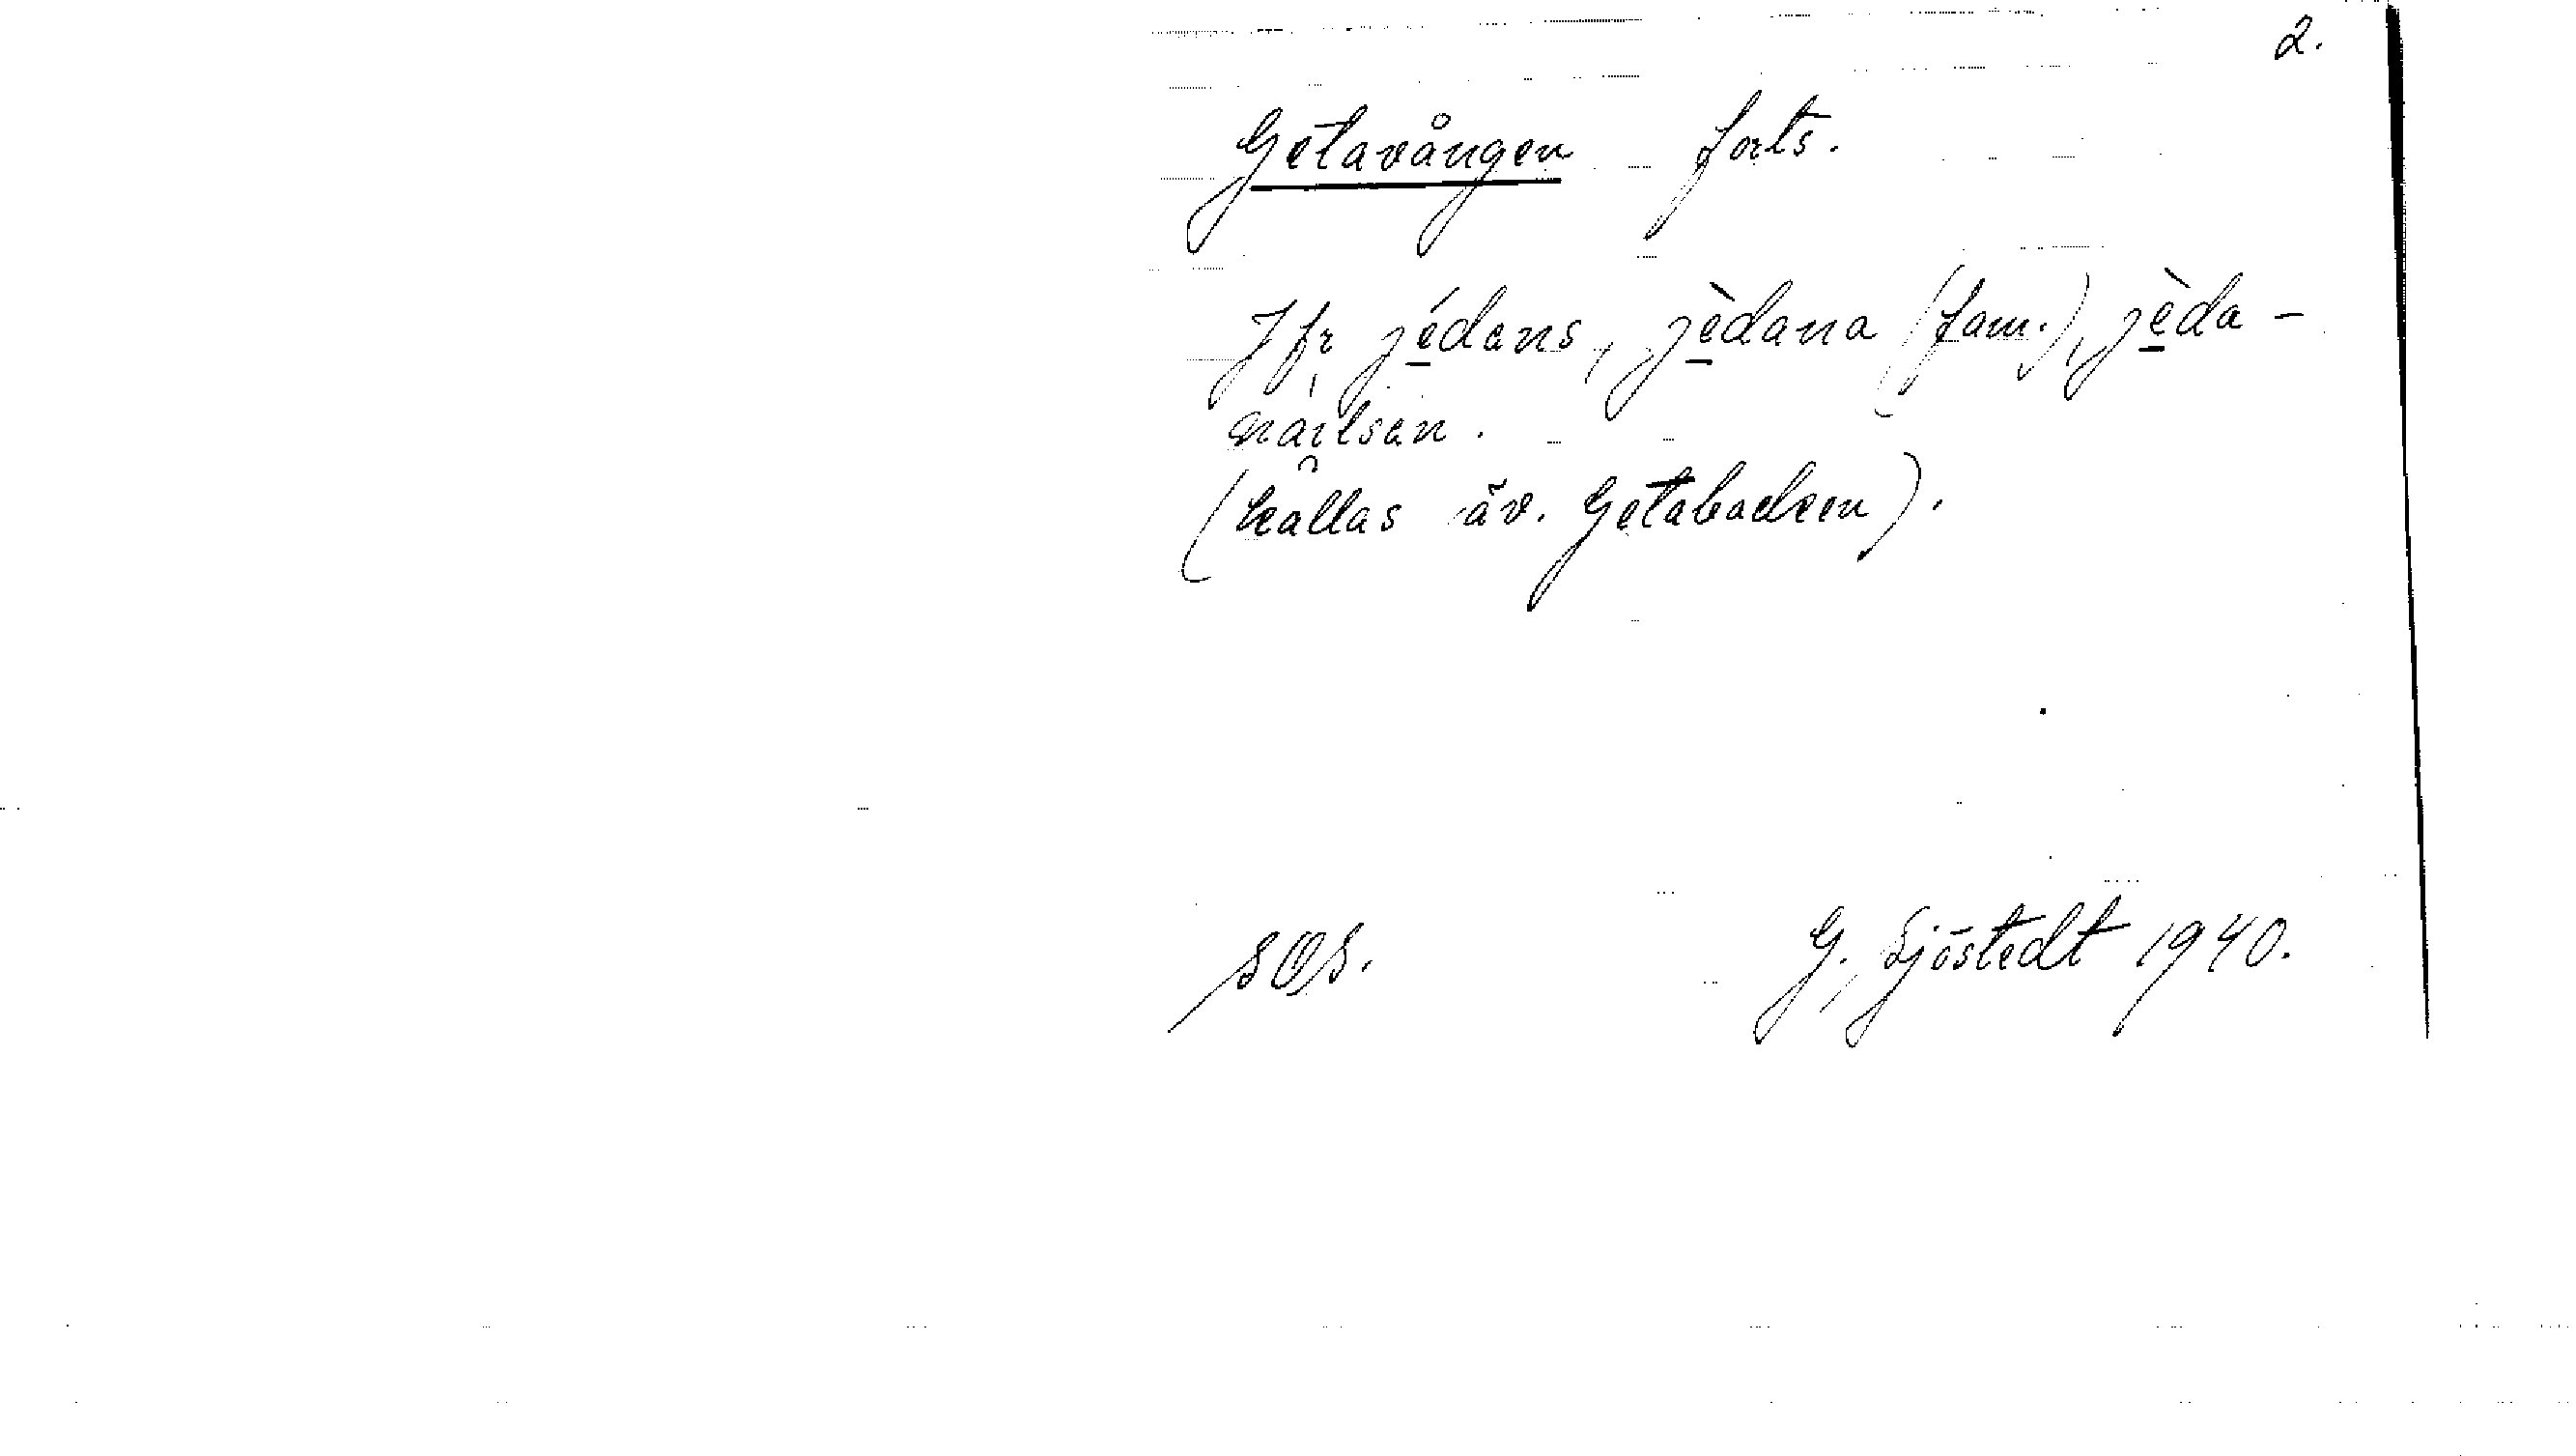 2.
Getavången forts.
Jfr jédens, jèdana (fam.), jèda-
näilsen.
(kallas äv. Getabacken).
sös. G. Sjöstedt 1940.